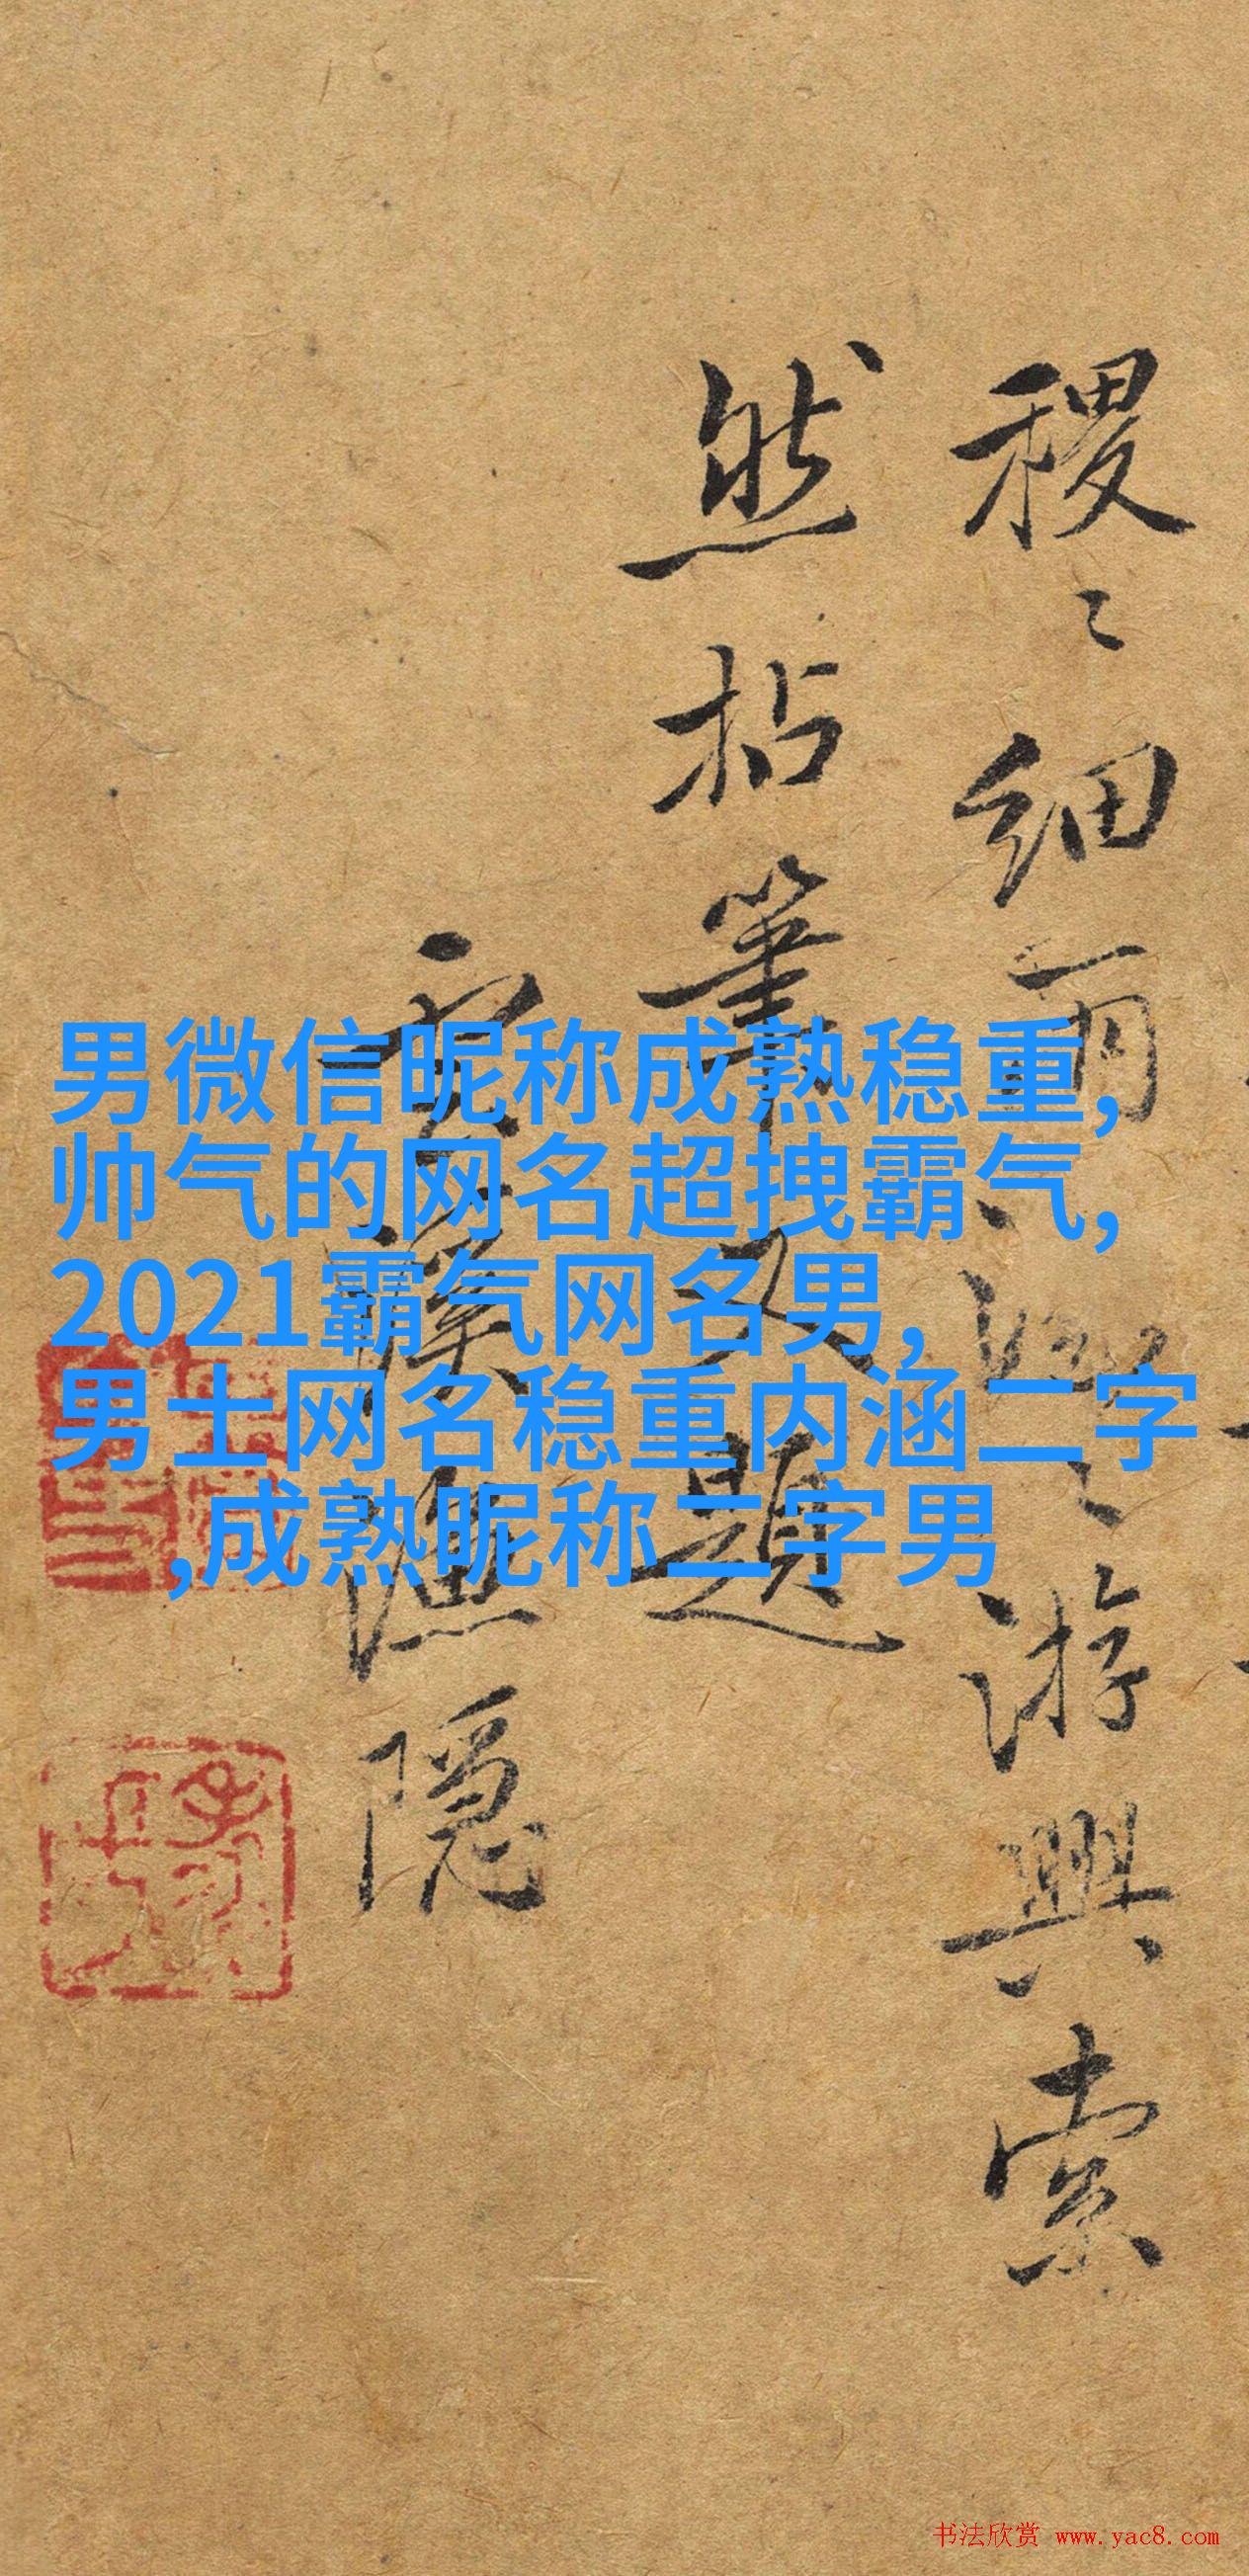 男微信昵称成熟稳重,
帅气的网名超拽霸气,
2021霸气网名男,
男士网名稳重内涵二字
,成熟昵称二字男
稷〻细雨〻游興索
然拈筆又題
漁隱
书法欣赏 www.yac8.com